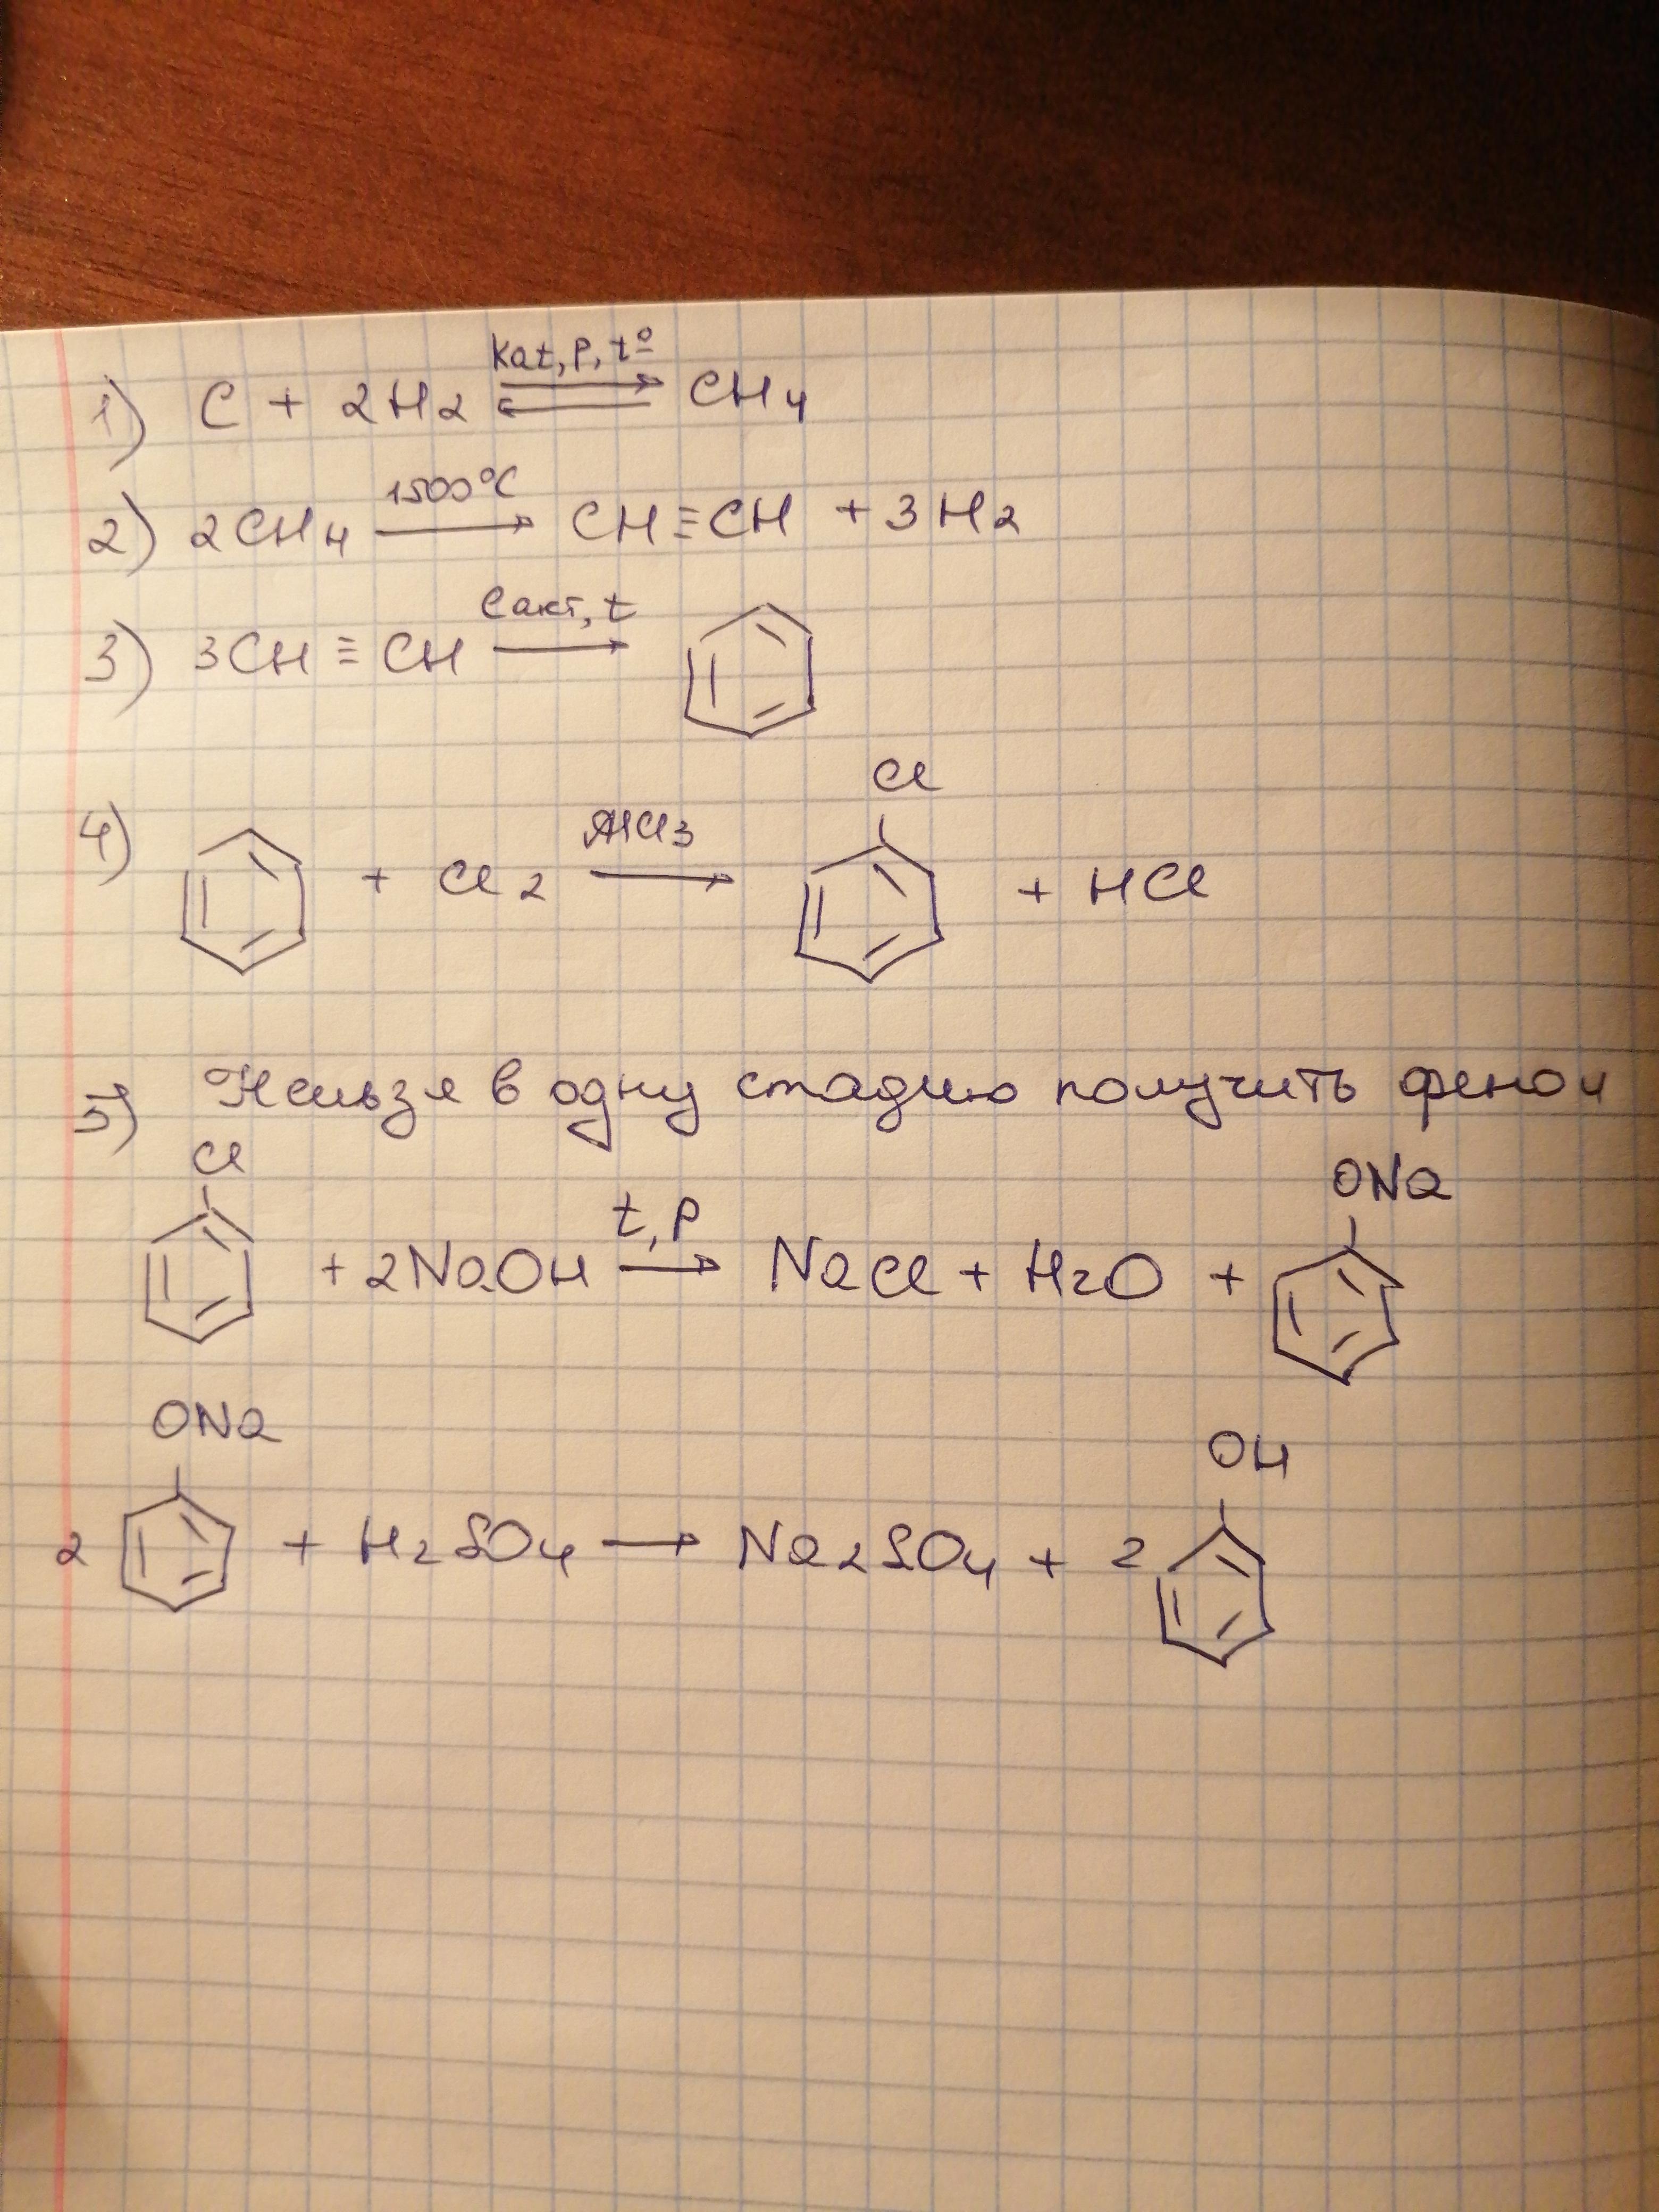 1) C + 2H2 ⇄ kat, p, t° CH4
2) 2CH4 1500°C → CH≡CH + 3H2
3) 3CH≡CH Cакт, t →
4) + Cl2 AlCl3 → Cl + HCl
5) Нельзя в одну стадию получить фенол
Cl + 2NaOH t, p → NaCl + H2O + ONa
2 ONa + H2SO4 → Na2SO4 + 2 OH